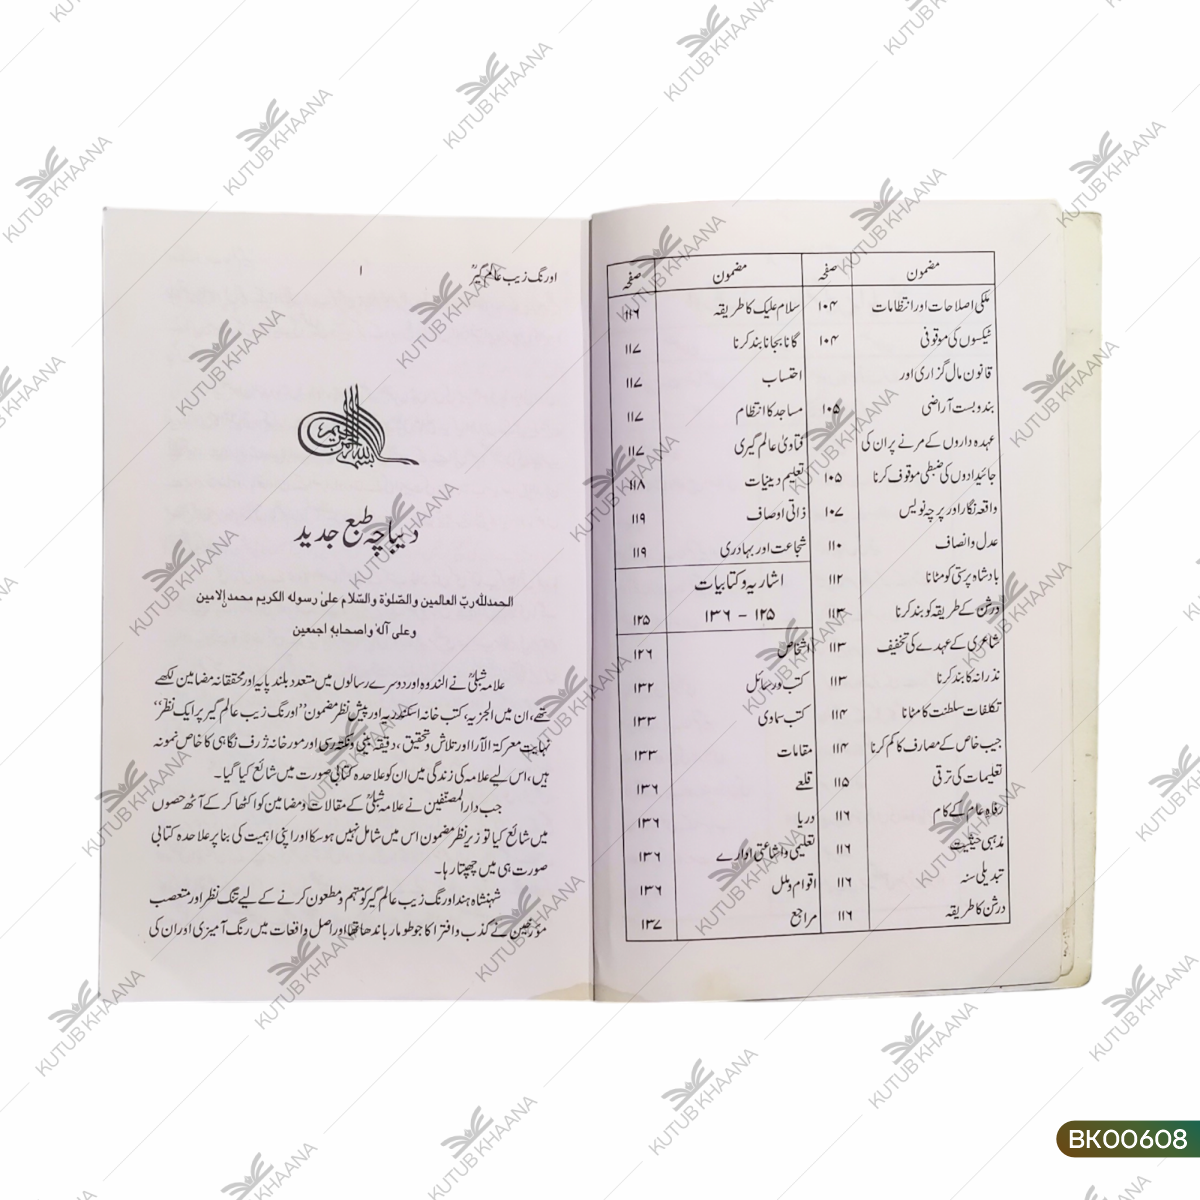 مضمون صفحہ مضمون صفحہ
ملکی اصلاحات اور انتظامات ۱۰۴ سلام علیک کا طریقہ ۱۱۶
ٹیکسوں کی موقوفی ۱۰۴ گانا بجانا بند کرنا ۱۱۷
قانون مال گزاری اور احتساب ۱۱۷
بندوبست آراضی ۱۰۵ مساجد کا انتظام ۱۱۷
عہدہ داروں کے مرنے پر ان کی فتاویٰ عالم گیری ۱۱۷
جائیدادوں کی ضبطی موقوف کرنا ۱۰۵ تعلیم دینیات ۱۱۸
واقعہ نگار اور پرچہ نویس ۱۰۷ ذاتی اوصاف ۱۱۹
عدل و انصاف ۱۱۰ شجاعت اور بہادری ۱۱۹
بادشاہ پرستی کو مٹانا ۱۱۲ اشاریہ و کتابیات
درشن کے طریقہ کو بند کرنا ۱۱۳ ۱۲۵ – ۱۳۶ ۱۲۵
شاعری کے عہدے کی تخفیف ۱۱۳ اشخاص ۱۲۶
نذرانہ کا بند کرنا ۱۱۳ کتب و رسائل ۱۳۲
تکلفات سلطنت کا مٹانا ۱۱۴ کتب سماوی ۱۳۳
جیب خاص کے مصارف کا کم کرنا ۱۱۴ مقامات ۱۳۳
تعلیمات کی ترقی ۱۱۵ قلعے ۱۳۶
رفاہ عام کے کام ۱۱۶ دریا ۱۳۶
مذہبی حیثیت ۱۱۶ تعلیمی و اشاعتی ادارے ۱۳۶
تبدیلی سنہ ۱۱۶ اقوام و ملل ۱۳۶
درشن کا طریقہ ۱۱۶ مراجع ۱۳۷
اورنگ زیب عالم گیرؒ ۱
بسم اللہ الرحمن الرحیم
دیباچہ طبع جدید
الحمدللہ ربّ العالمین والصّلوٰۃ والسّلام علیٰ رسولہ الکریم محمد الامین
وعلیٰ آلہٖ واصحابہٖ اجمعین
علامہ شبلیؒ نے الندوہ اور دوسرے رسالوں میں متعدد بلند پایہ اور محققانہ مضامین لکھے
تھے، ان میں الجزیہ، کتب خانہ اسکندریہ اور پیش نظر مضمون ”اورنگ زیب عالم گیر پر ایک نظر“
نہایت معرکۃ الآرا اور تلاش و تحقیق، دقیقہ بینی و نکتہ رسی اور مورخانہ ژرف نگاہی کا خاص نمونہ
ہیں، اس لیے علامہ کی زندگی میں ان کو علاحدہ کتابی صورت میں شائع کیا گیا۔
جب دارالمصنفین نے علامہ شبلیؒ کے مقالات و مضامین کو اکٹھا کر کے آٹھ حصوں
میں شائع کیا تو زیر نظر مضمون اس میں شامل نہیں ہو سکا اور اپنی اہمیت کی بنا پر علاحدہ کتابی
صورت ہی میں چھپتا رہا۔
شہنشاہ ہند اورنگ زیب عالم گیر کو متہم و مطعون کرنے کے لیے تنگ نظر اور متعصب
مؤرخین نے کذب و افترا کا جو طومار باندھا تھا اور اصل واقعات میں رنگ آمیزی اور ان کی
KUTUB KHAANA
BK00608